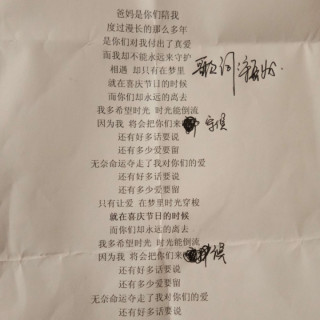 爸妈是你们陪我
度过漫长的那么多年
是你们对我付出了真爱
而我却不能永远来守护
相遇 却只有在梦里
歌词
就在喜庆节日的时候
而你们却永远的离去
我多希望时光 时光能倒流
因为我 将会把你们来
还有好多话要说
还有多少爱要留
无奈命运夺走了我对你们的爱
还有好多话要说
还有多少爱要留
只有让爱 在梦里时光穿梭
就在喜庆节日的时候
而你们却永远的离去
我多希望时光 时光能倒流
因为我 将会把你们来
还有好多话要说
还有多少爱要留
无奈命运夺走了我对你们的爱
还有好多话要说